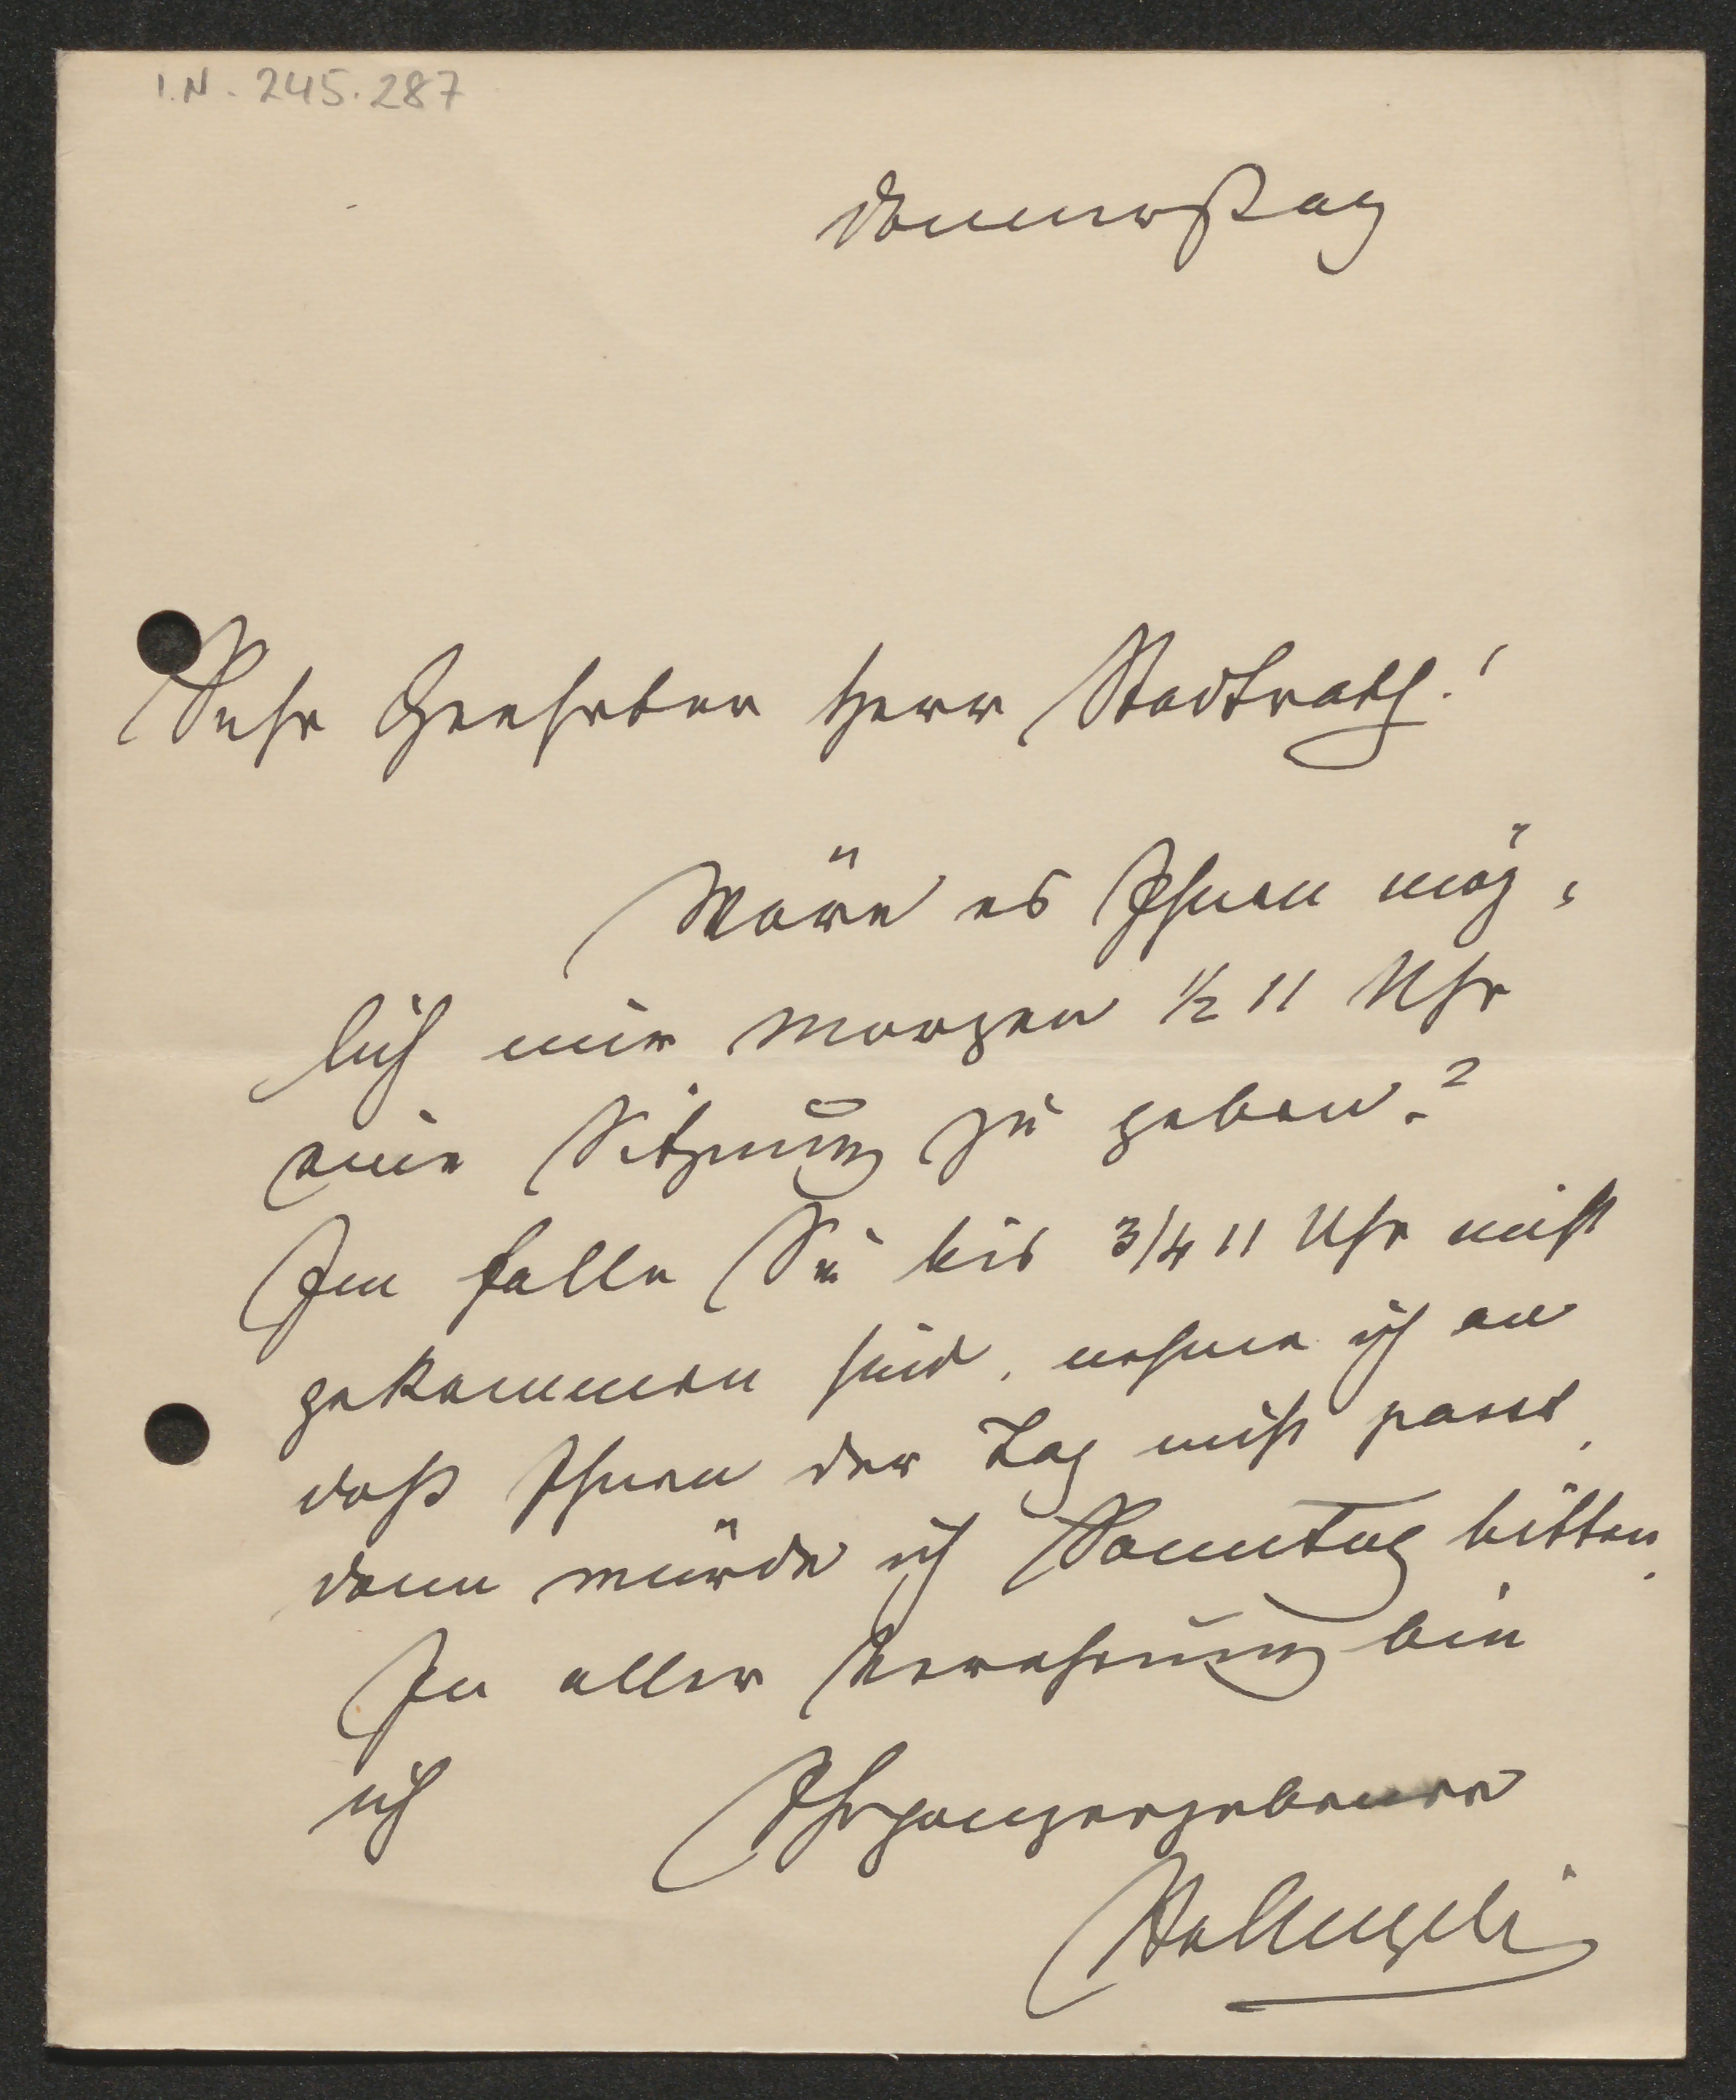 I.N. 245.287
Donnerstag
Sehr Geehrter Herr Stadtrath!
Wäre es Ihnen mög-
lich mir morgen ½ 11 Uhr
eine Sitzung zu geben?
Im falle Sie bis 3/4 11 Uhr nicht
gekommen sind, nehme ich an
daß Ihnen der Tag nicht passt,
dann würde ich Sonntag bitten.
In aller Verehrung bin
ich Ihr ganzergebener